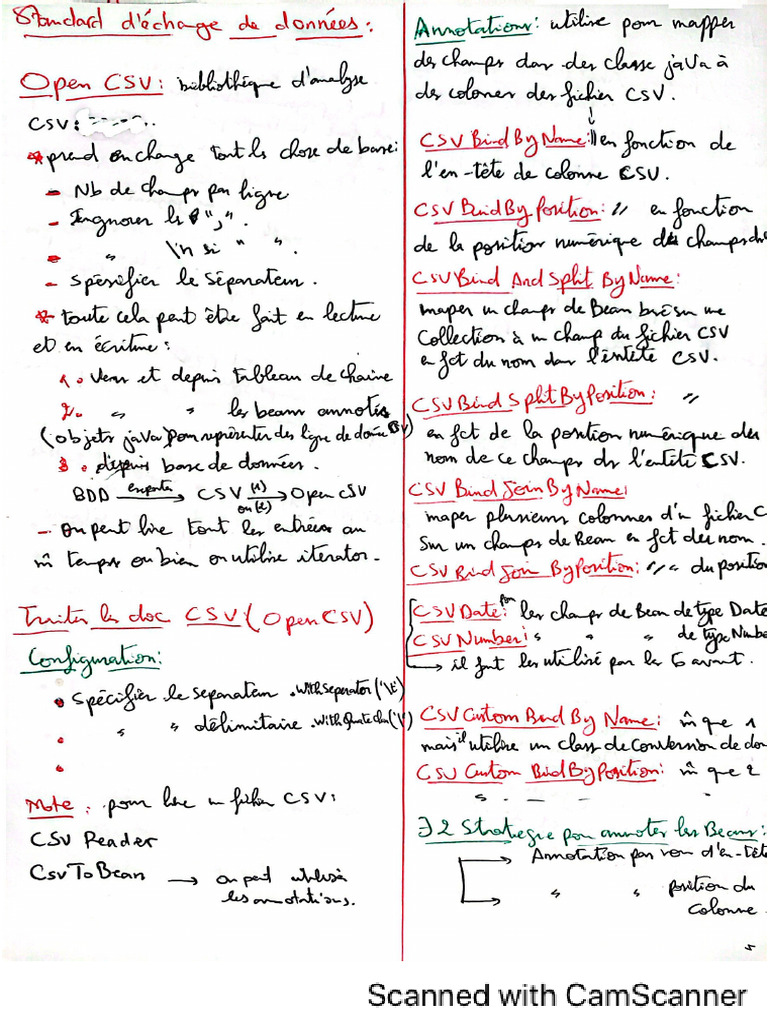 Standard d'échange de données :
Open CSV : bibliothèque d'analyse
CSV :
* prend en change tout ls chose de base :
- Nb de champs par ligne
- Ingnorer ls ",".
- " \n si " ".
- Spésifier le séparateur.
* toute cela peut être fait en lecture
et en écriture :
1. Vers et depuis tableau de chaine
2. " " les beans annotés
(objets java) pour représenter des ligne de donnée CSV)
3. depuis base de données.
BDD exporte → CSV (1) ou (2) → Open CSV
- On peut lire tout les entrées au
m̂ temps ou bien on utilise iterator.
Traiter les doc CSV (Open CSV)
Configuration :
• Spécifier le separateur .withSeparator('\t')
• " " délimitaire .withQuoteChar('\')
•
•
Note : pour lire un fichier CSV :
CSV Reader
CsvToBean → on peut utilisé
les annotations.
Annotations : utilise pour mapper
des champs dans des classe java à
des colones des fichier CSV.
↓
CSV Bind By Name : " en fonction de
l'en-tête de colonne CSV.
CSV Bind By Position : " en fonction
de la position numérique des champs ds
CSV Bind And Split By Name :
maper un champs de Bean basé sur une
Collection à un champ du fichier CSV
en fct du nom dans l'entête CSV.
CSV Bind Split By Position : "
en fct de la position numérique des
nom de ce champs ds l'entête CSV.
CSV Bind Join By Name :
maper plusieurs colonnes d'un fichier C
sur un champs de Bean en fct des nom.
CSV Bind Join By Position : " " du position
CSV Date : pour les champs de Bean de type Date
CSV Number : " " " de type Numbe
→ il faut les utilisé par les 6 avant.
CSV Custom Bind By Name : m̂ que 1
mais il utilise un class de conversion de don
CSV Custom Bind By Position : m̂ que 2
" - - -
∃ 2 Strategie pour annoter les Beans :
→ Annotation par nom d'en-tête
→ " " position du
Colonne.
5
Scanned with CamScanner